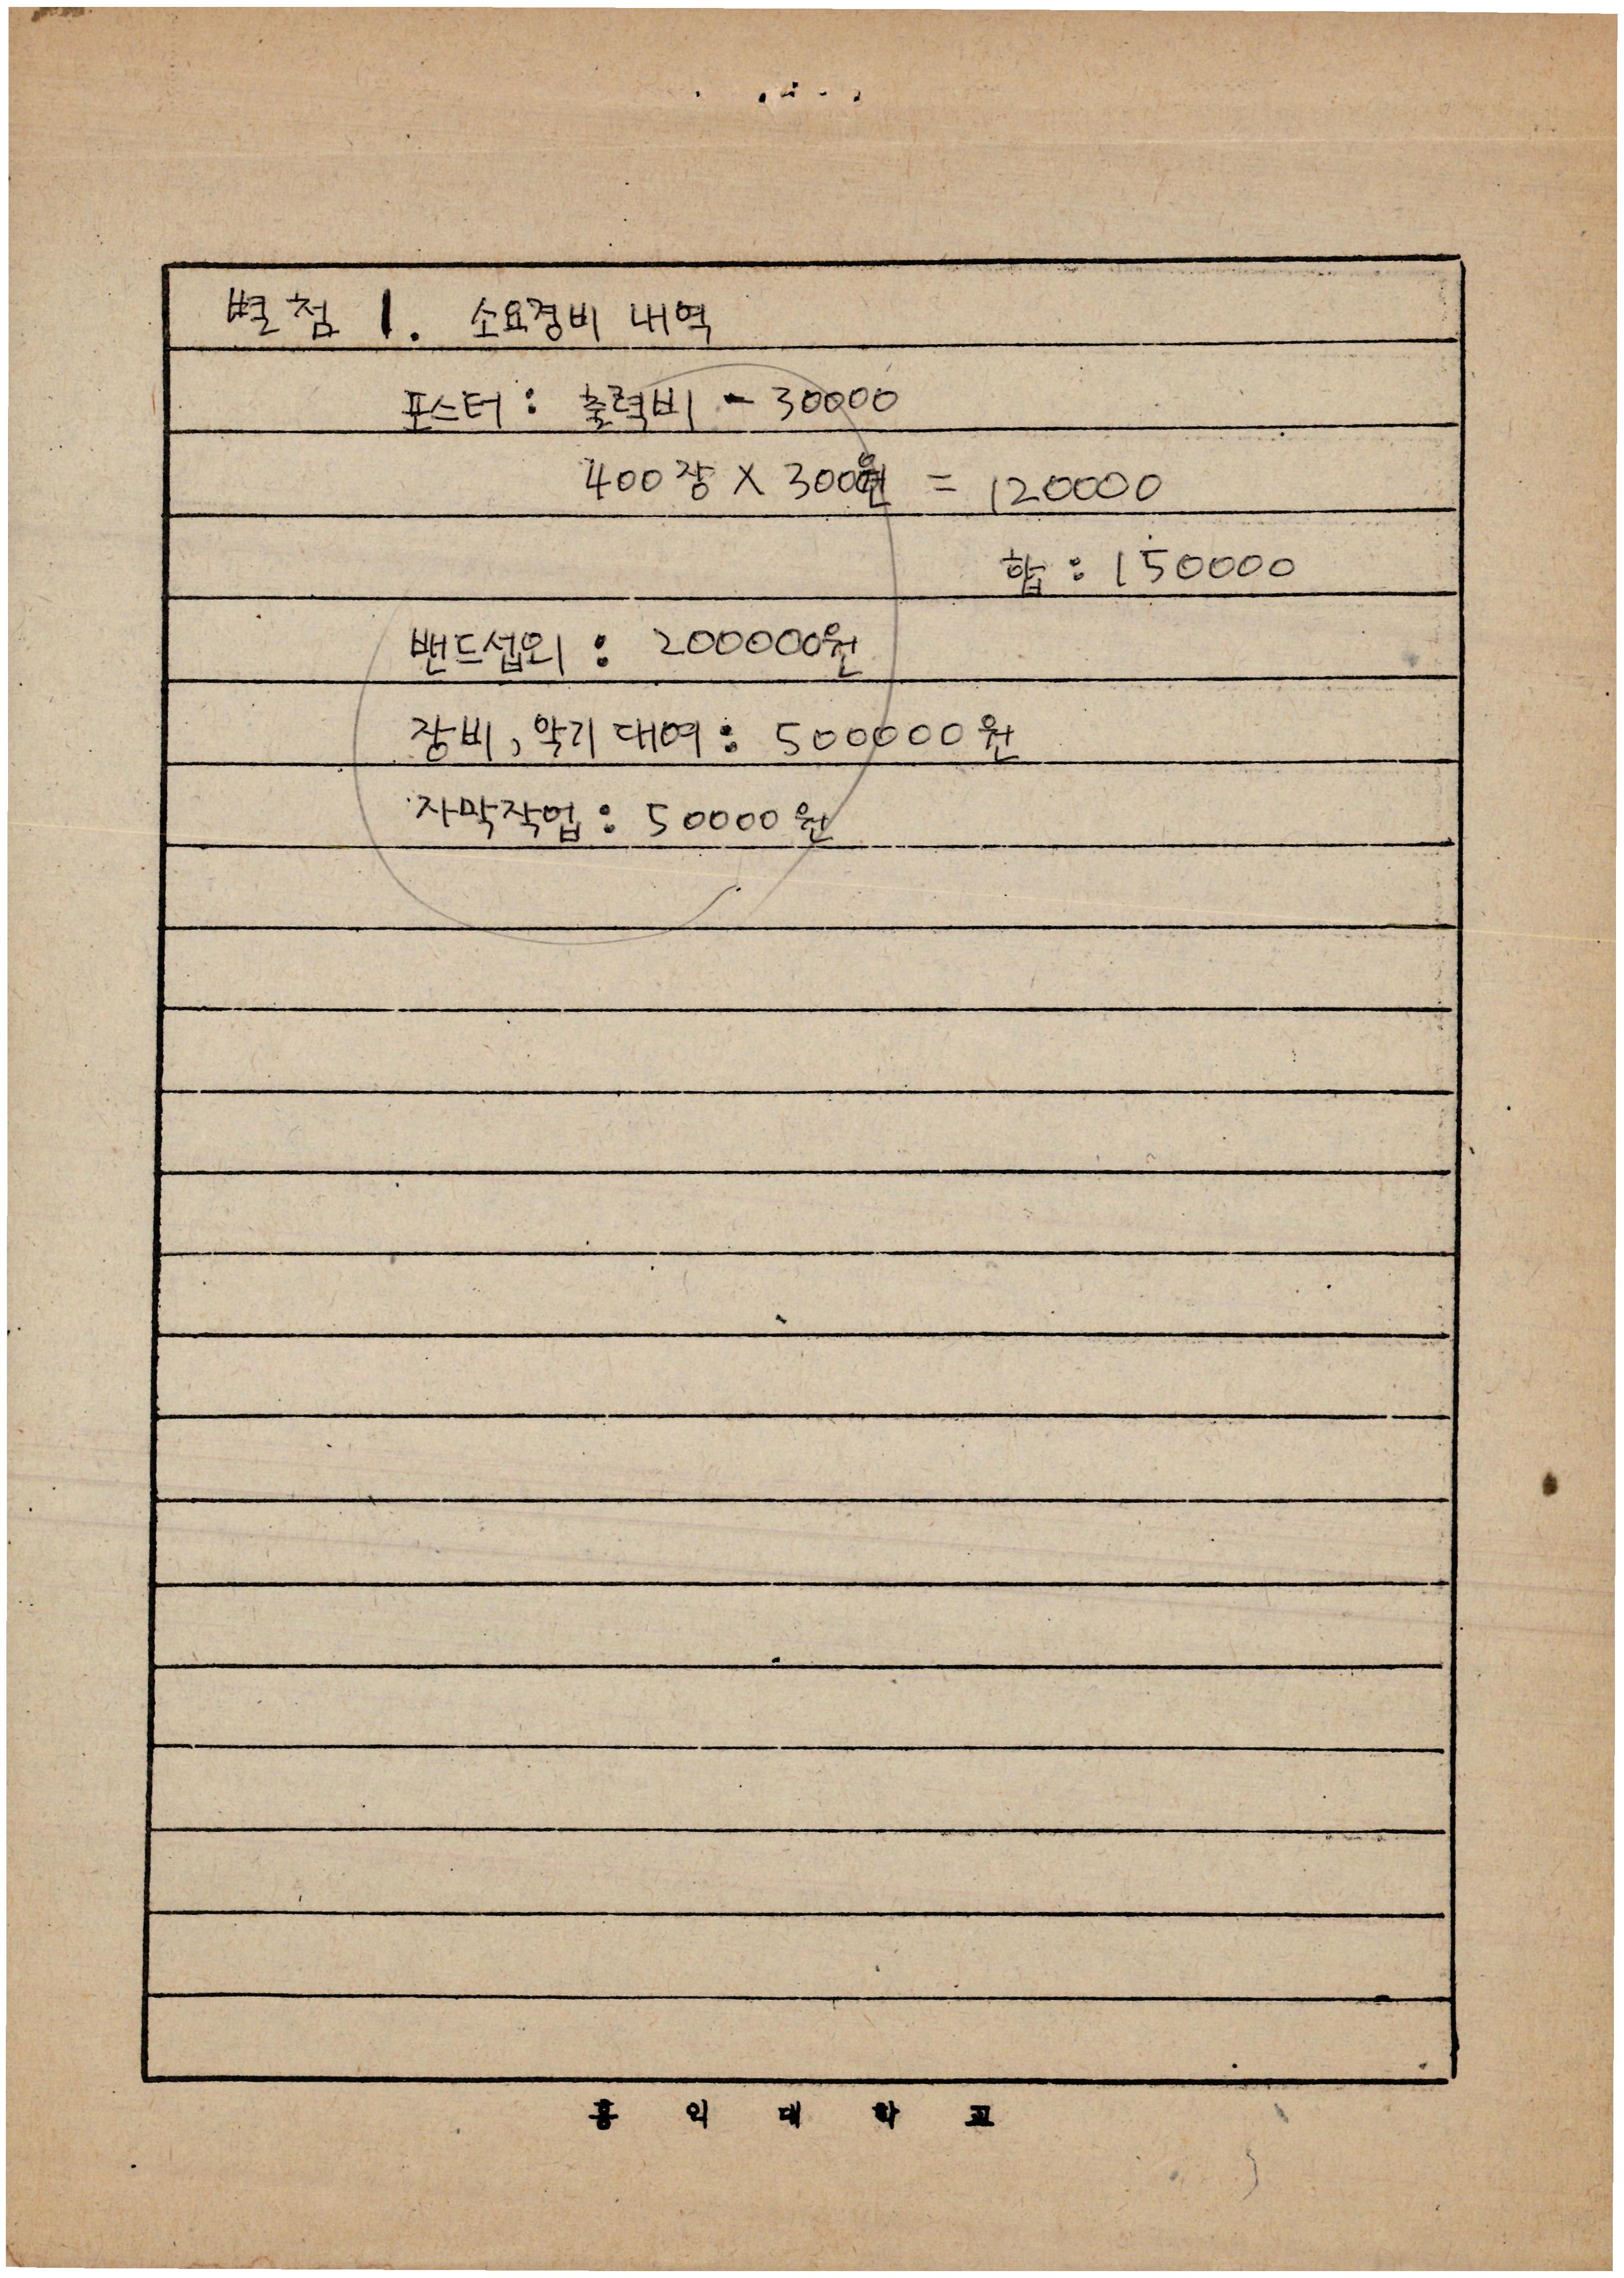 별첨 1. 소요경비 내역
포스터 : 출력비 - 30000
400장 X 300원 = 120000
합 : 150000
밴드섭외 : 200000원
장비, 악기 대여 : 500000원
자막작업 : 50000원
홍익대학교